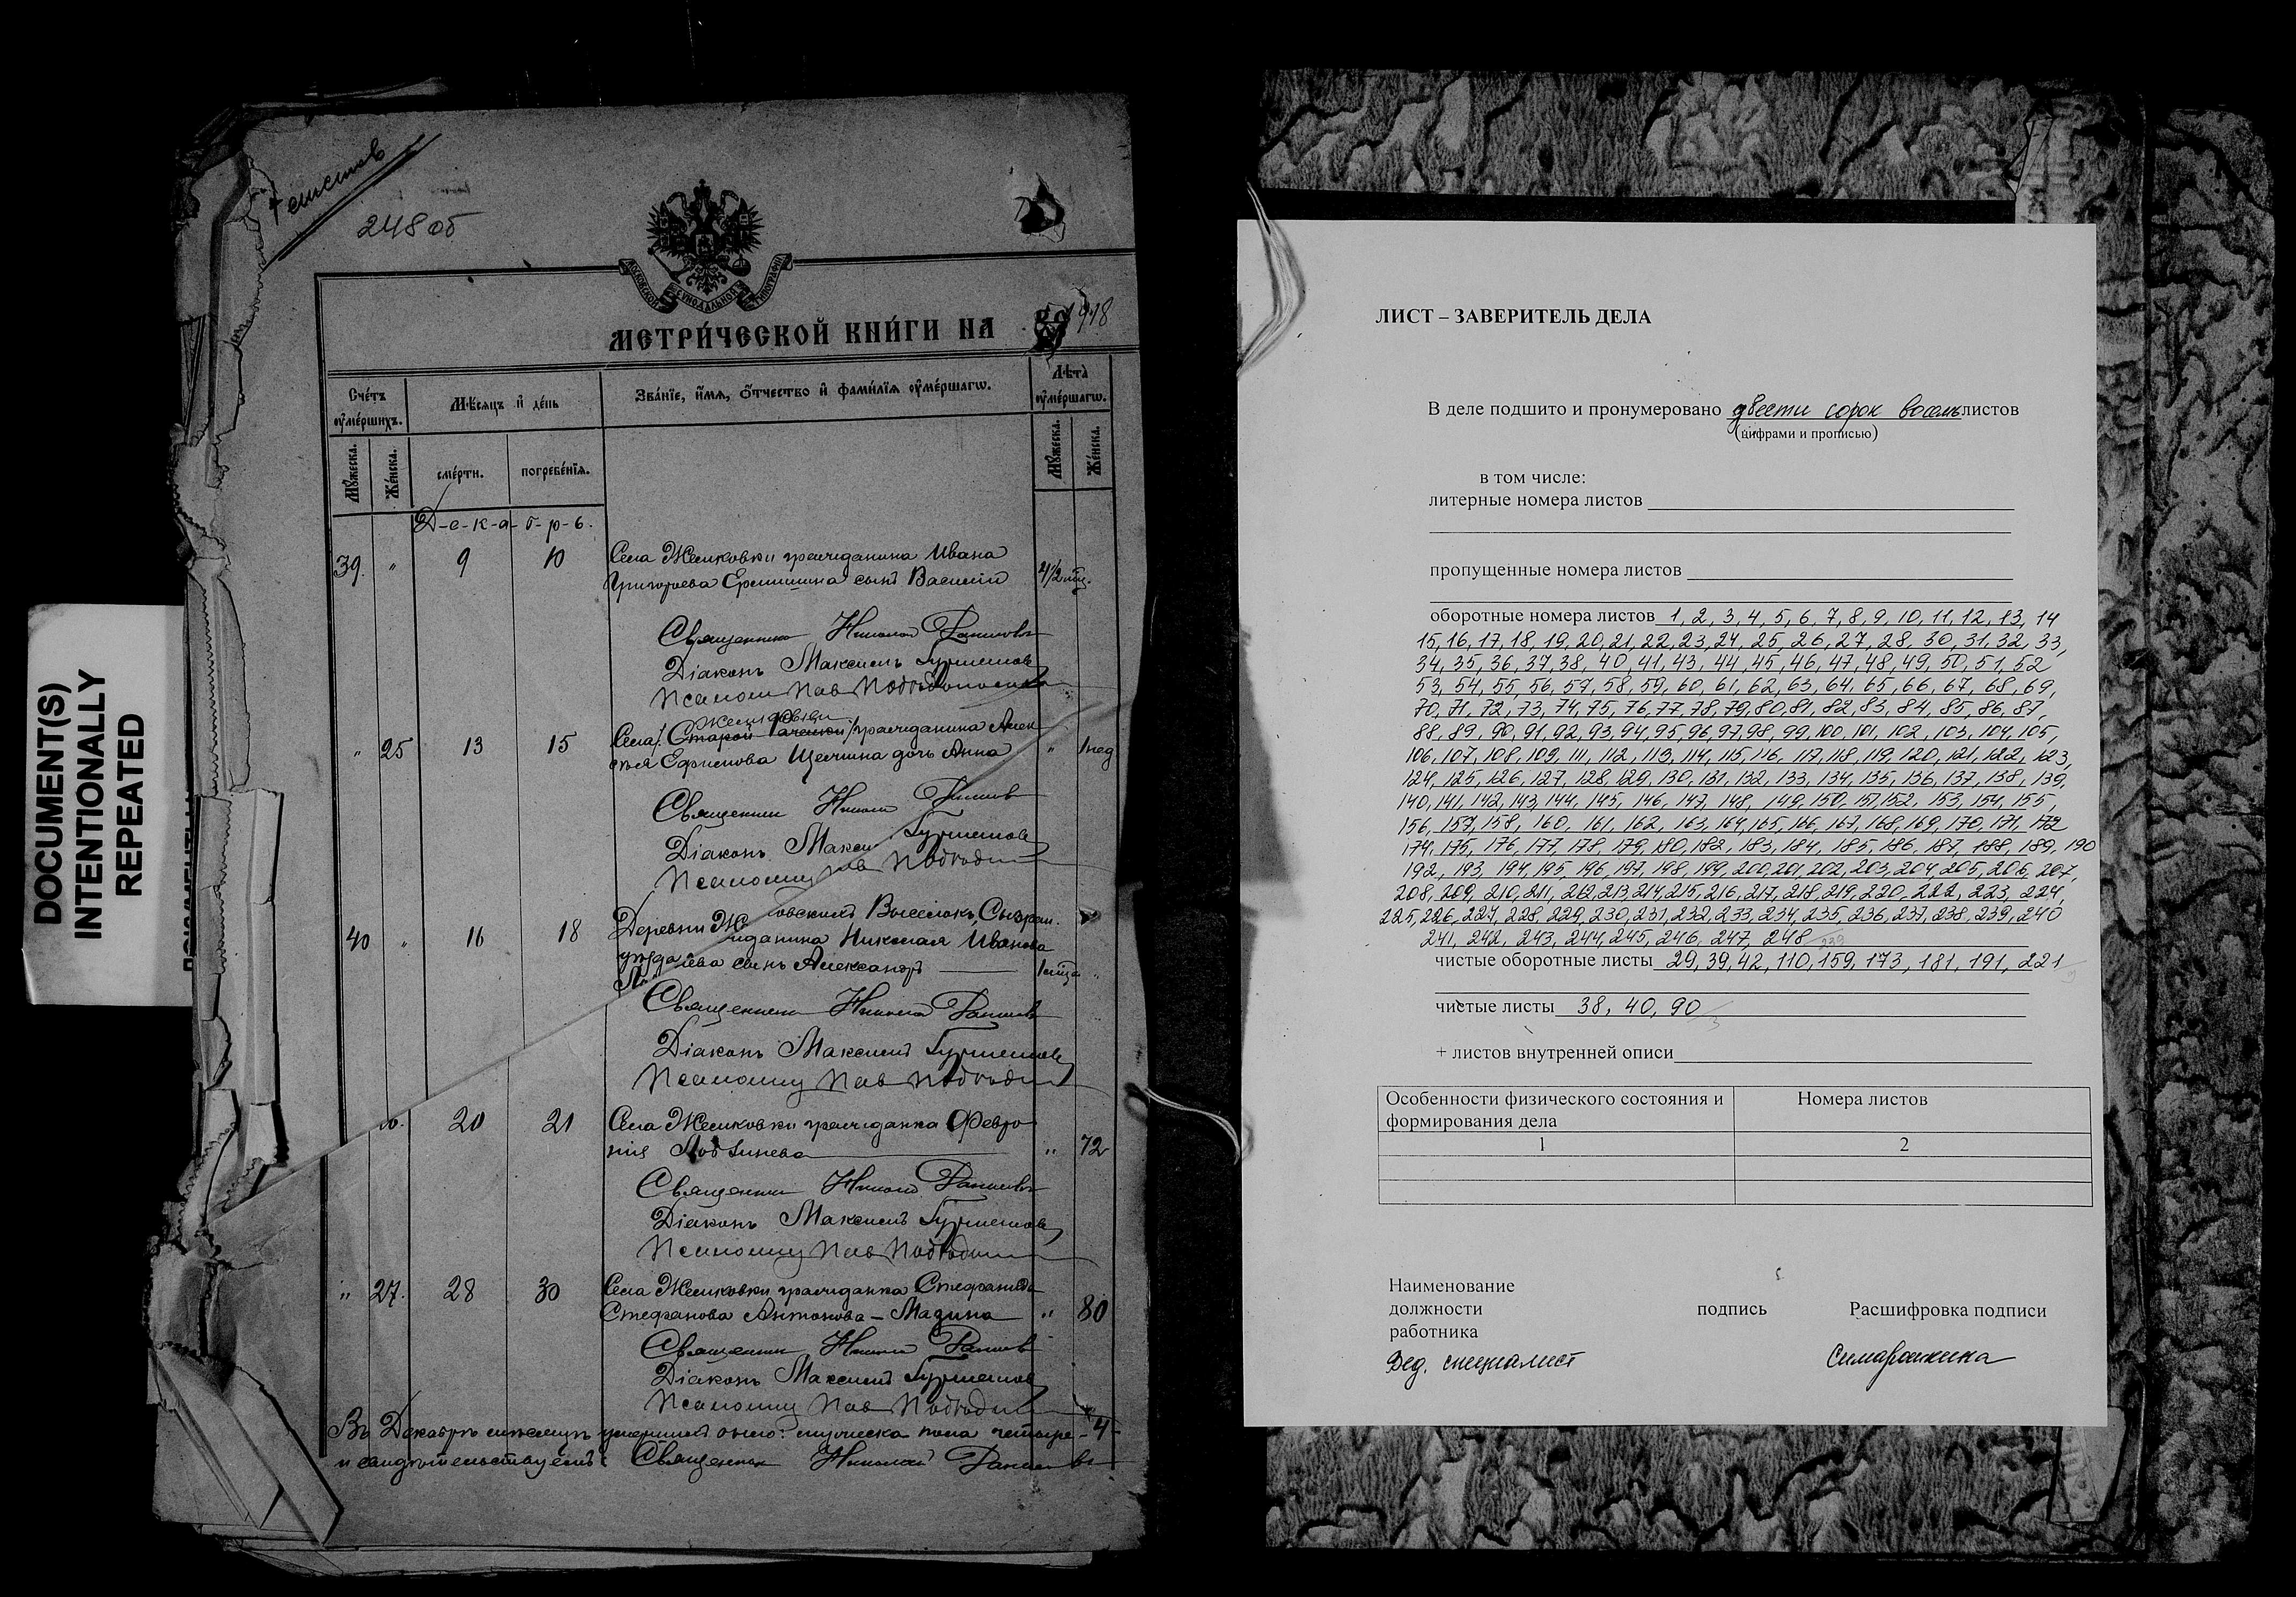 DOCUMENT(S)
INTENTIONALLY
REPEATED
248 об
МОСКОВСКОЙ СУНОДАЛЬНОЙ ТИПОГРАФІИ
МЕТРИ́ЧЕСКОЙ КНИ́ГИ НА 1918
Сче́тъ ᲂу҆ме́ршихъ.
Мѣ́сяцъ и҆ де́нь
Зва́нїе, и҆́мѧ, ѻ҆́тчество и҆ фами́лїѧ ᲂу҆ме́ршагѡ.
Лѣ́та ᲂу҆ме́ршагѡ.
Мꙋ́жеска.
Же́нска.
сме́рти.
погребе́нїѧ.
Мꙋ́жеска.
Же́нска.
Д-е-к-а-б-р-ь.
39. " 9 10 Села Жемковки гражданина Ивана
Григорьева сынъ Василій 4 1/2 мѣс.
Священникъ Николай
Діаконъ Максимъ
Псаломщ Пав
Жемковки
" 25 13 15 Села /Старой Рачейки/ гражданина Алек
сѣя Ефимова Щепина дочь Анна " 1 нед
Священник Никол
Діаконъ Макси
Псаломщ
40 " 16 18 Деревни Ж овскихъ Выселокъ, Сызран.
уѣзда жданина Николая Иванова
ева сынъ Александръ 1 мѣся "
Священник Никола
Діаконъ Максимъ
Псаломщ Пав
20 21 Села Жемковки гражданка Февро
нія " 72
Священник Никола
Діаконъ Максимъ
Псаломщ Пав
" 27. 28 30 Села Жемковки гражданка Стефанида
Стефанова Антонова – Мазина " 80
Священник Никол
Діаконъ Максимъ
Псаломщ Пав
Въ Декабрѣ мѣсяцѣ умершихъ было: мужеска пола четыре - 4 -
и свидѣтельствуемъ: Священник Николай
ЛИСТ – ЗАВЕРИТЕЛЬ ДЕЛА
В деле подшито и пронумеровано двести сорок восемь листов
(цифрами и прописью)
в том числе:
литерные номера листов
пропущенные номера листов
оборотные номера листов 1, 2, 3, 4, 5, 6, 7, 8, 9, 10, 11, 12, 13, 14
15, 16, 17, 18, 19, 20, 21, 22, 23, 24, 25, 26, 27, 28, 30, 31, 32, 33,
34, 35, 36, 37, 38, 40, 41, 43, 44, 45, 46, 47, 48, 49, 50, 51, 52
53, 54, 55, 56, 57, 58, 59, 60, 61, 62, 63, 64, 65, 66, 67, 68, 69,
70, 71, 72, 73, 74, 75, 76, 77, 78, 79, 80, 81, 82, 83, 84, 85, 86, 87,
88, 89, 90, 91, 92, 93, 94, 95, 96, 97, 98, 99, 100, 101, 102, 103, 104, 105,
106, 107, 108, 109, 111, 112, 113, 114, 115, 116, 117, 118, 119, 120, 121, 122, 123,
124, 125, 126, 127, 128, 129, 130, 131, 132, 133, 134, 135, 136, 137, 138, 139,
140, 141, 142, 143, 144, 145, 146, 147, 148, 149, 150, 151, 152, 153, 154, 155,
156, 157, 158, 160, 161, 162, 163, 164, 165, 166, 167, 168, 169, 170, 171, 172
174, 175, 176, 177, 178, 179, 180, 182, 183, 184, 185, 186, 187, 188, 189, 190
192, 193, 194, 195, 196, 197, 198, 199, 200, 201, 202, 203, 204, 205, 206, 207,
208, 209, 210, 211, 212, 213, 214, 215, 216, 217, 218, 219, 220, 222, 223, 224,
225, 226, 227, 228, 229, 230, 231, 232, 233, 234, 235, 236, 237, 238, 239, 240
241, 242, 243, 244, 245, 246, 247, 248 239
чистые оборотные листы 29, 39, 42, 110, 159, 173, 181, 191, 221 9
чистые листы 38, 40, 90 3
+ листов внутренней описи
Особенности физического состояния и формирования дела
Номера листов
1
2
Наименование
должности
работника
подпись
Расшифровка подписи
Вед. специалист
Симарошкина